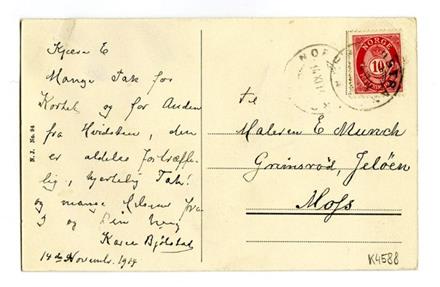 Kjære E
Mange Tak for
Kortet og for Anden
fra Hvidsten, den
er aldeles fortræffe-
lig, hjertelig Tak!
og mange Hilsner fra
I og Din
Karen Bjölstad
14de Novembr. 1914
N. J. No. 94
NORGE
10
Maleren E Munch
Grimsröd, Jelöen
Moss
K4588